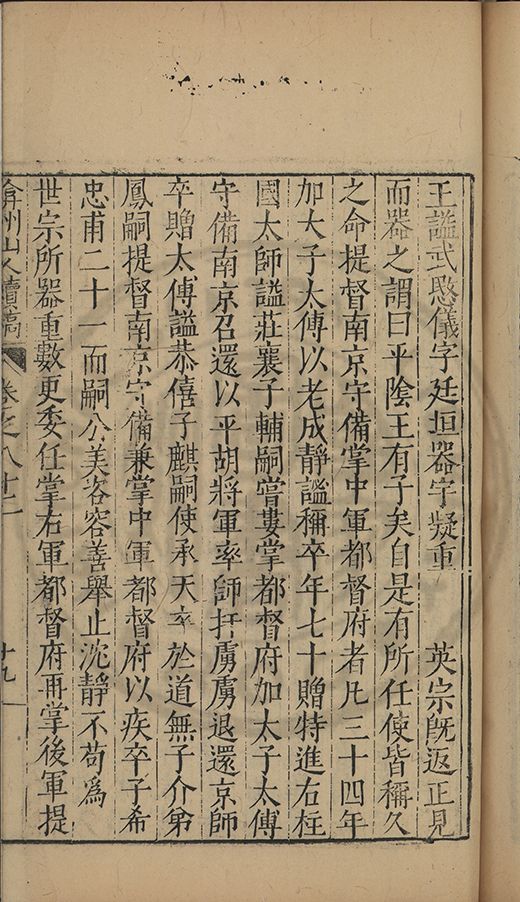 王謚武愍儀字廷垣器宇凝重　英宗旣返正見
而器之謂曰平陰王有子矣自是有所任使皆稱久
之命提督南京守備掌中軍都督府者凡三十四年
加太子太傅以老成靜謐稱卒年七十贈特進右柱
國太師謚莊襄子輔嗣嘗婁掌都督府加太子太傅
守備南京召還以平胡將軍率師扞虜虜退還京師
卒贈太傅謚恭僖子麒嗣使承天卒於道無子介弟
鳳嗣提督南京守備兼掌中軍都督府以疾卒子希
忠甫二十一而嗣公美姿容善舉止沈靜不苟爲
世宗所器重數更委任掌右軍都督府再掌後軍提
弇州山人續稿　卷之八十二　十九